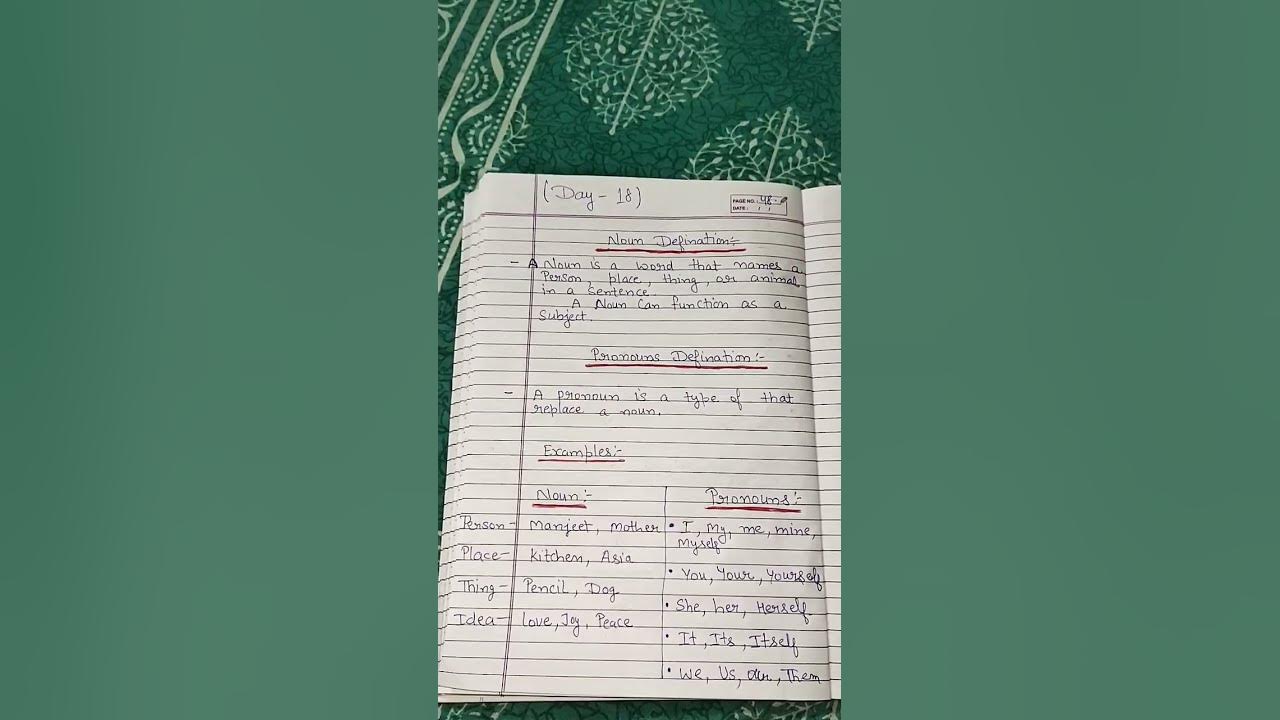 (Day - 18)
PAGE NO.: 48.
DATE: / /
Noun Defination:-
- A Noun is a word that names a
Person, place, thing, or animal
in a sentence.
A Noun Can function as a
Subject.
Pronouns Defination:-
- A pronoun is a type of that
replace a noun.
Examples:-
Noun:- Pronouns:-
Person- Manjeet, mother • I, My, me, mine,
Myself
Place- Kitchen, Asia
• You, Your, Yourself
Thing- Pencil, Dog
• She, her, Herself
Idea- Love, Joy, Peace
• It, Its, Itself
• We, Us, our, Them